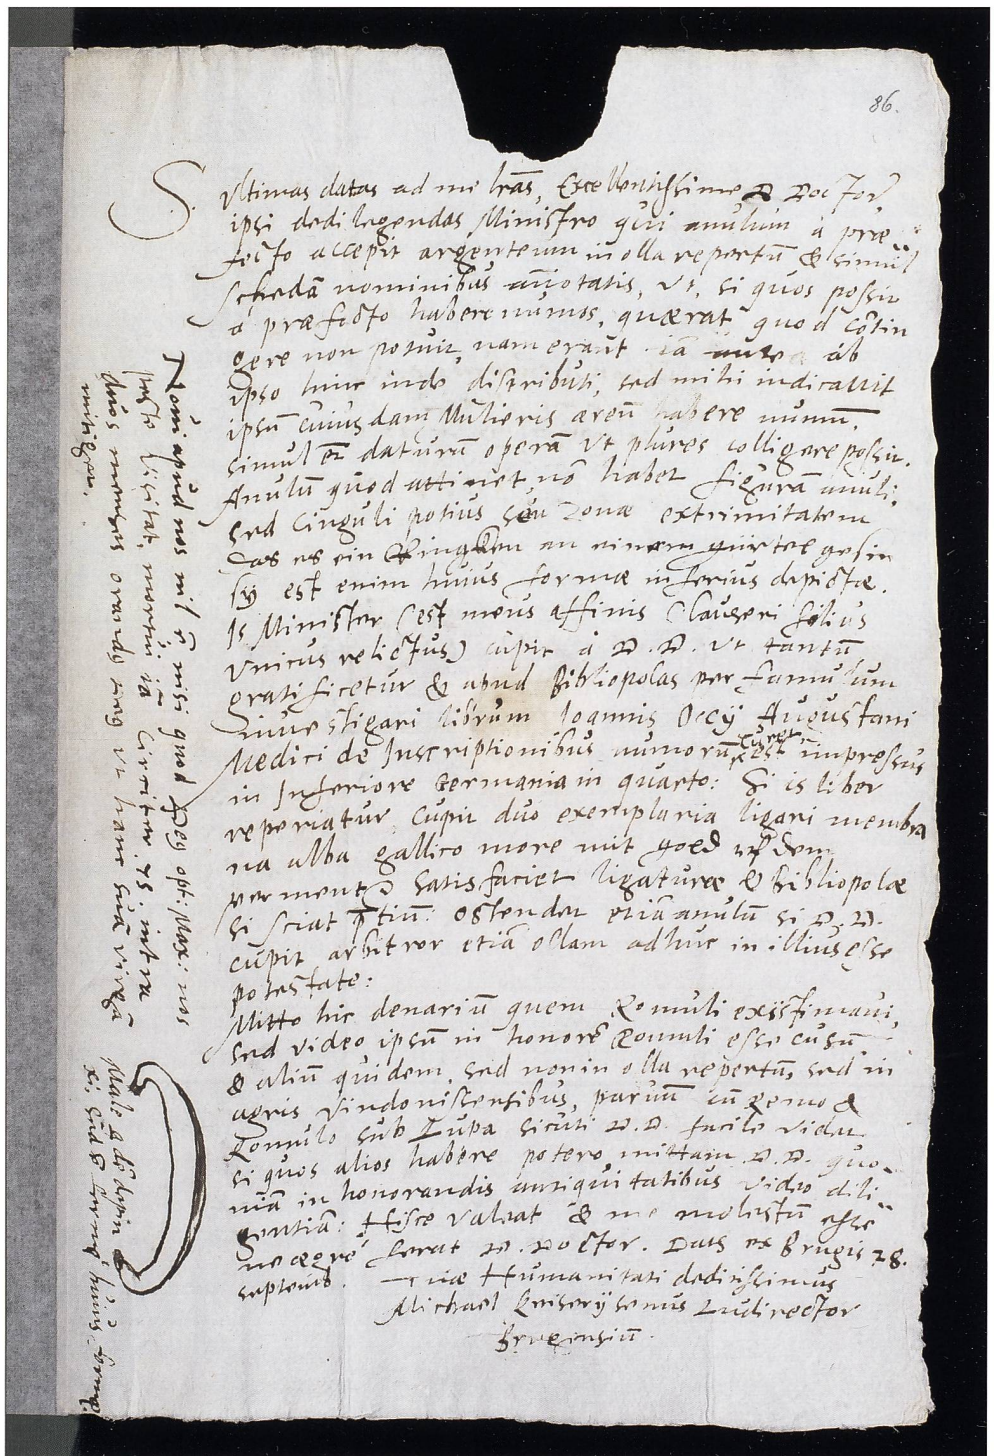 86.
S. Vltimas datas ad me lrãs, Excellentissime D Doctor,
ipsi dedi legendas Ministro qui anulum à præ
fecto accepit argenteum in olla repertũ & simul
schedã nominibus añotatis, Vt, si quos possit
à præfecto habere numos, quærat quod cõtin
gere non potuit, nam erant iã antea ab
ipso hinc inde distributi, sed mihi indicauit
ipsũ cuiusdam Mulieris areũ habere numũ.
simul daturũ operã Vt plures colligere possit.
Anulũ quod attinet, nõ habet figurã anuli,
sed cinguli potius seu Zonæ extrimitatem
das es ein Ringken an einem gürtel gesin
sÿ est enim huius formæ inferius depictæ.
Is Minister (est meus affinis Clauseri filius
Vnicus relictus) cupit à D. D. Vt tantũ
gratificetur & apud Bibliopolas per famulum
inuestigari librum Ioannis Occÿ Augustani
Medici de Inscriptionibus numorũ est impressus
in Inferiore Germania in quarto: Si is liber
reperiatur, cupit duo exemplaria ligari membra
na alba gallico more mit goed vf dem
perment satisfaciet ligaturæ & Bibliopolæ
si sciat ptiũ: ostendet etiã anulũ si D. D.
cupit arbitror etiã ollam adhuc in illius esse
potestate:
Mitto hic denariũ quem Romuli existimaui,
sed video ipsũ in honorẽ Romuli esse cusũ
& aliũ quidem, sed non in olla repertũ, sed in
agris Vindonissensibus, paruũ cũ Remo &
Romulo sub Lupa sicuti D. D. facile videt
si quos alios habere potero mittam D. D. quo
niã in honorandis antiquitatibus video dili
gentiã: Hisce Valeat & me molestũ esse
ne ægrè ferat D. Doctor. Dats ex Brugis 28.
septemb. Tuæ Humanitati deditissimus
Michael Ludirector
Brugensiũ.
Noui apud nos nil ẽ nisi quod Deus opt. Max: nos
peste visitat, mortui iã circiter 75. intra
duos menses orandus ut hanc suã virgã
mitiget.